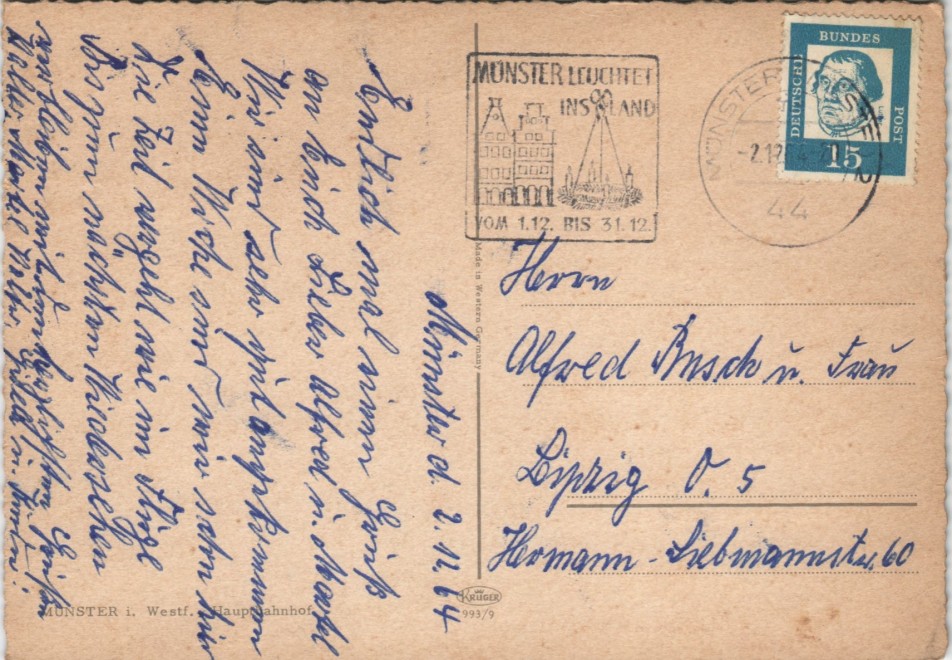 Münster d. 2.12.64
Endlich mal einen Gruß
an Euch Lieber Alfred u.
Wir sind sehr gut angekommen
Eine Woche sind wir schon hier
die Zeit vergeht wie im Fluge
Bis zum nächsten Wiedersehen
verbleiben mit den herzlichsten Grüßen
MÜNSTER LEUCHTET
INS LAND
VOM 1.12. BIS 31.12.
MÜNSTER
-2.12.
44
DEUTSCHE
BUNDES
POST
15
Herrn
Alfred Busch u. Frau
Leipzig O. 5
Hermann-Liebmannstr. 60
Made in Western Germany
KRÜGER
993/9
MÜNSTER i. Westf. Hauptbahnhof